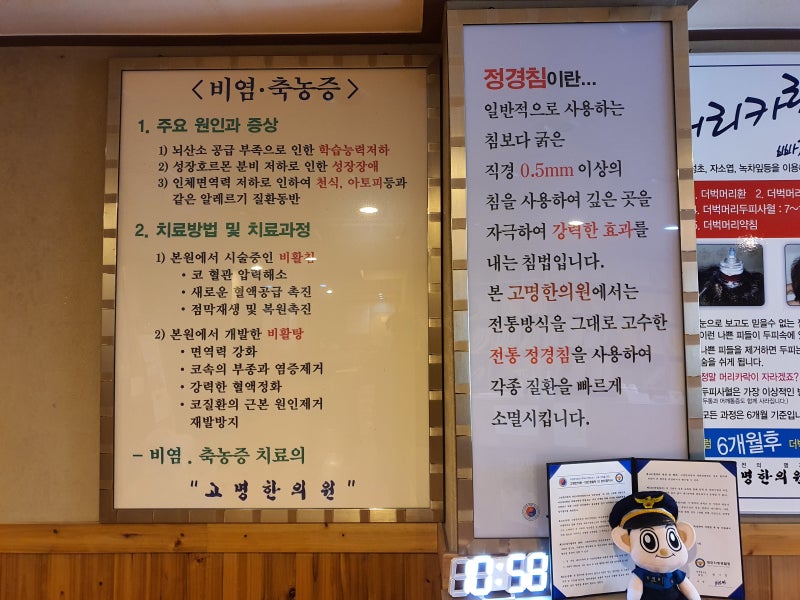 <비염·축농증>
1. 주요 원인과 증상
1) 뇌산소 공급 부족으로 인한 학습능력저하
2) 성장호르몬 분비 저하로 인한 성장장애
3) 인체면역력 저하로 인하여 천식, 아토피등과
같은 알레르기 질환동반
2. 치료방법 및 치료과정
1) 본원에서 시술중인 비활침
• 코 혈관 압력해소
• 새로운 혈액공급 촉진
• 점막재생 및 복원촉진
2) 본원에서 개발한 비활탕
• 면역력 강화
• 코속의 부종과 염증제거
• 강력한 혈액정화
• 코질환의 근본 원인제거
재발방지
- 비염 . 축농증 치료의
"고명한의원"
정경침이란...
일반적으로 사용하는
침보다 굵은
직경 0.5mm 이상의
침을 사용하여 깊은 곳을
자극하여 강력한 효과를
내는 침법입니다.
본 고명한의원에서는
전통방식을 그대로 고수한
전통 정경침을 사용하여
각종 질환을 빠르게
소멸시킵니다.
머리카락
빠
초, 자소엽, 녹차잎등을 이용
1. 더벅머리환 2. 더벅머리
더벅머리두피사혈 : 7~
더벅머리약침
눈으로 보고도 믿을수 없는
이런 나쁜 피들이 두피속에
나쁜 피들을 제거하면 두피는
숨을 쉬게 됩니다.
정말 머리카락이 자라겠죠?
두피사혈은 가장 이상적인
두통과 어깨통증도 함께 사라집니다.
모든 과정은 6개월 기준입니
6개월후
고명한의원
10:58